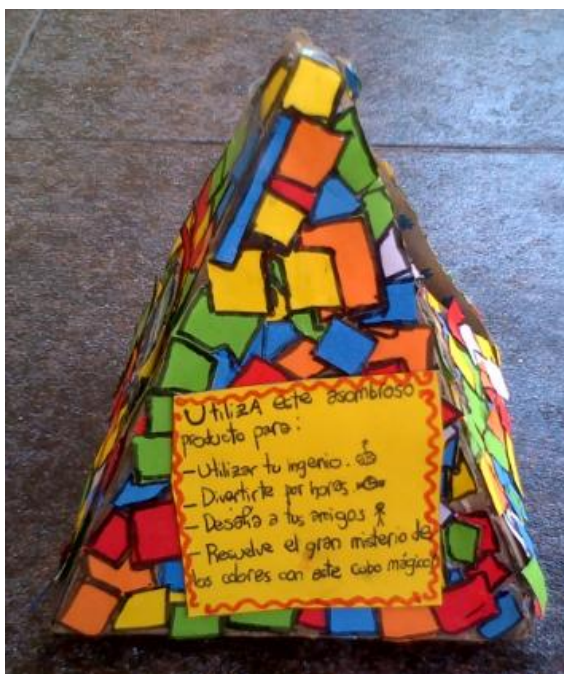 UtilizA este asombroso
producto para:
-Utilizar tu ingenio.
- Divertirte por horas
- Desafia a tus amigos
- Resuelve el gran misterio de
los colores con este cubo mágico